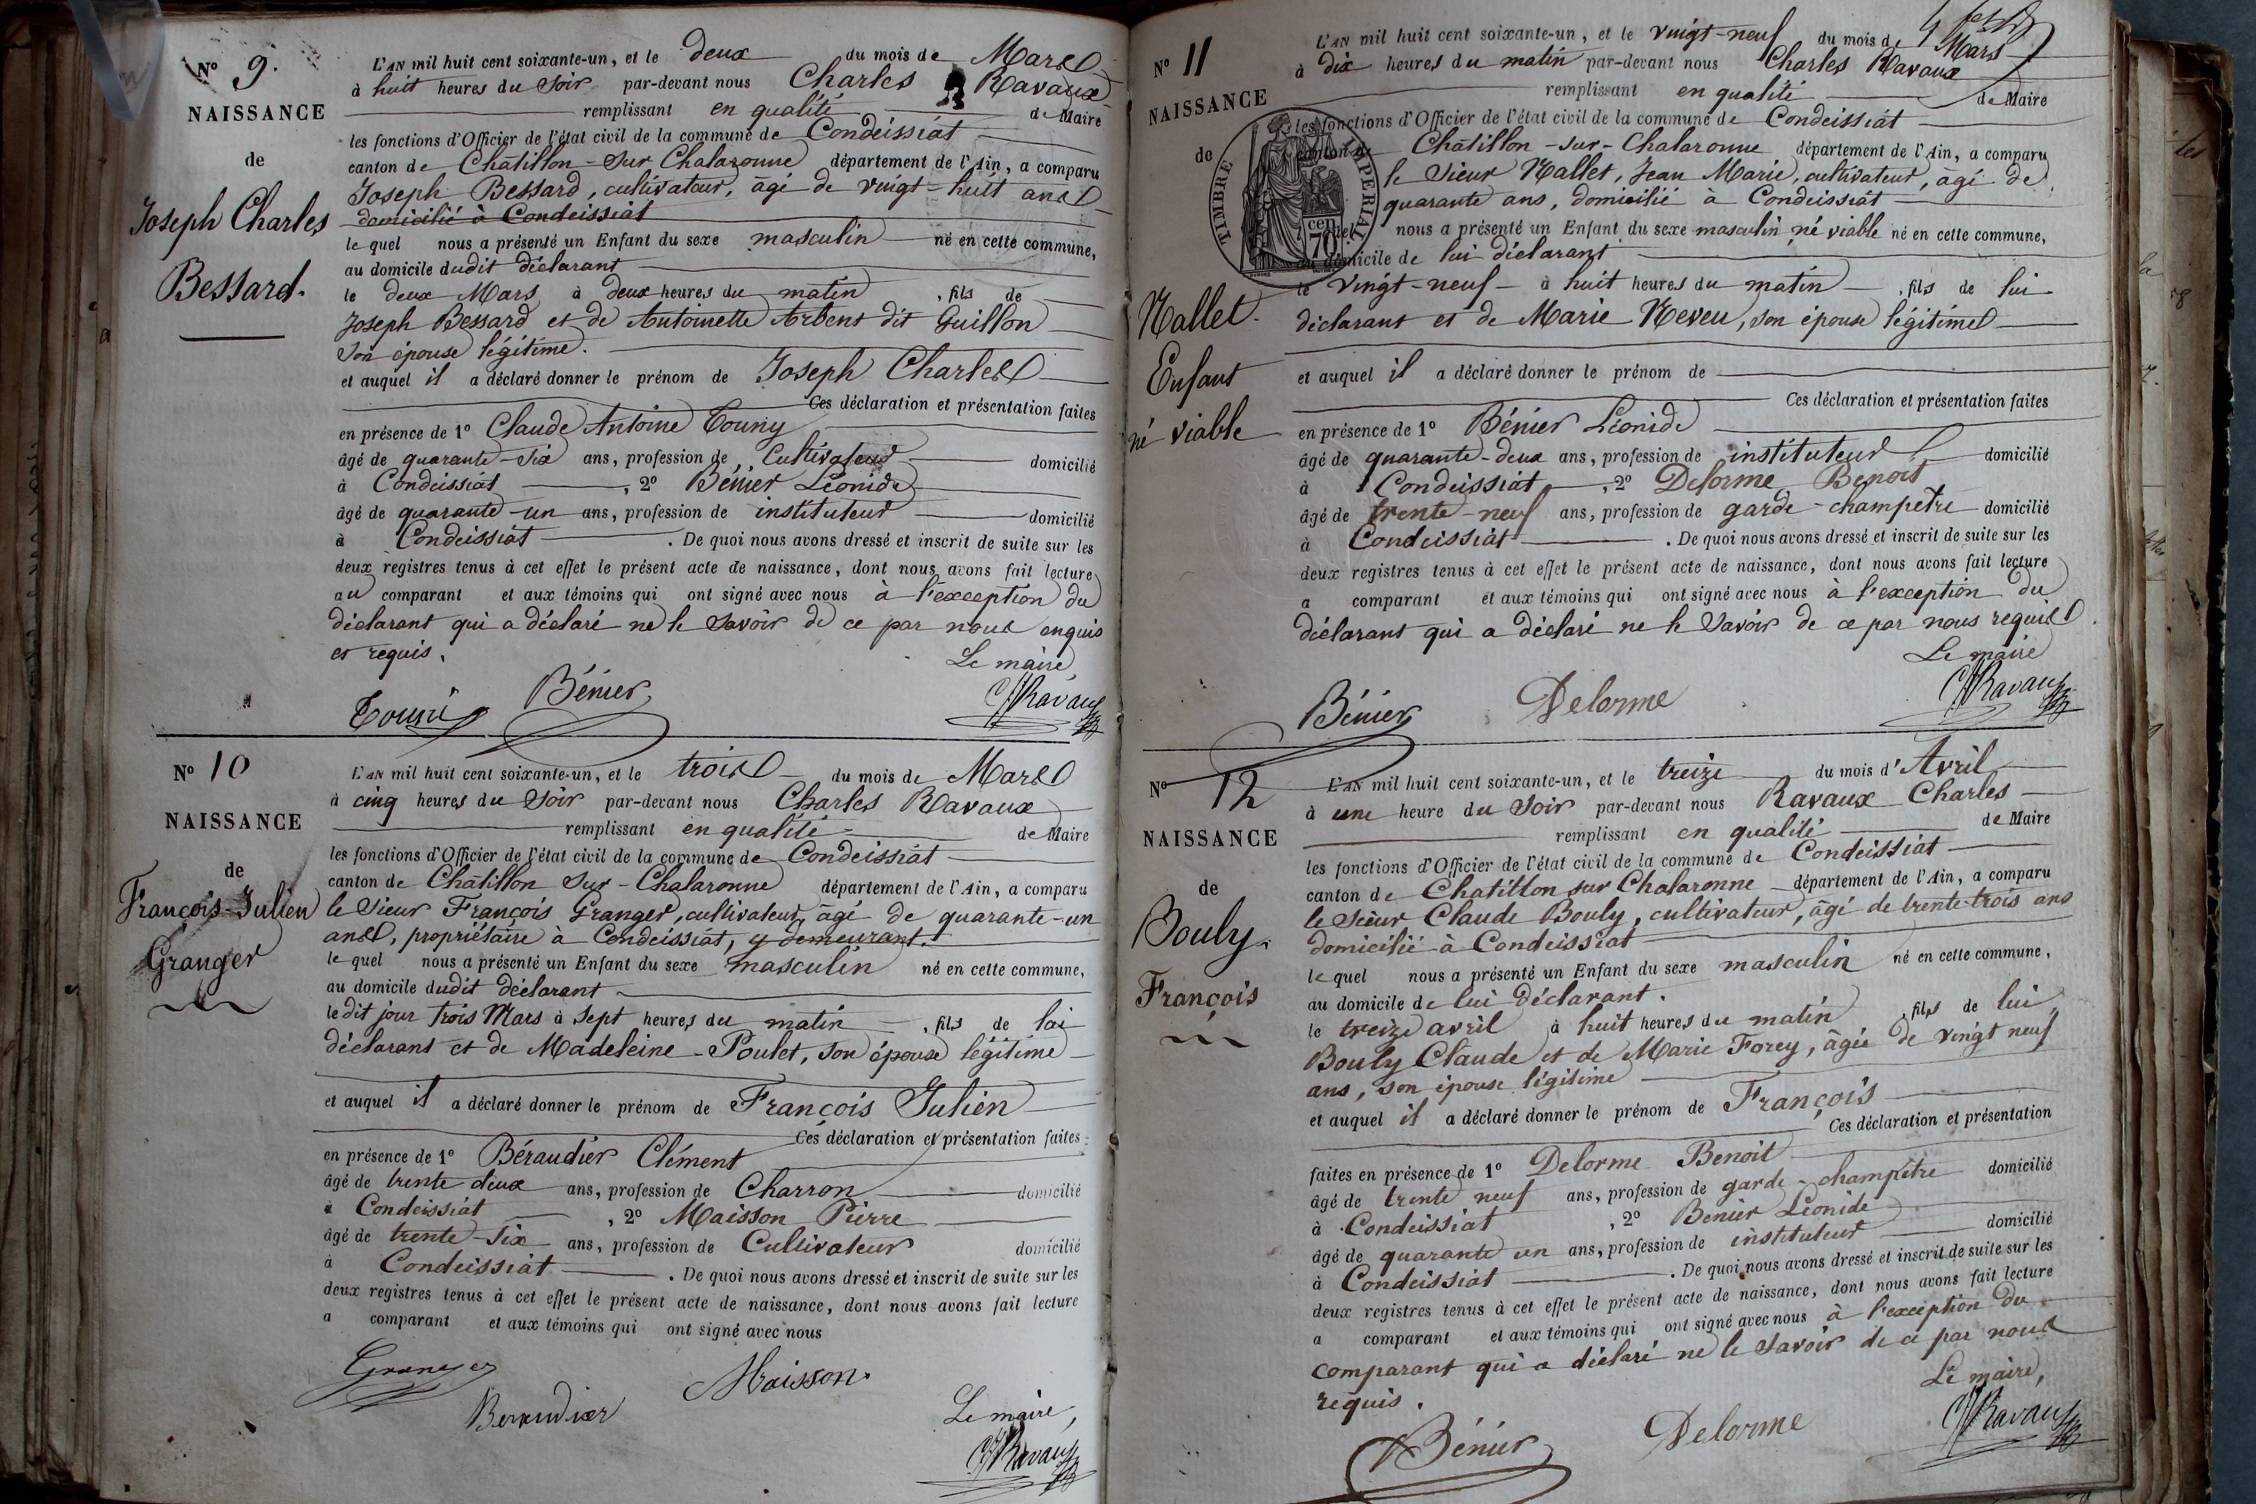 N° 9.
NAISSANCE
de
Joseph Charles
Bessard.
L'AN mil huit cent soixante-un, et le deux du mois de Mars
à huit heures du soir par-devant nous Charles Ravaux
remplissant en qualité de Maire
les fonctions d'Officier de l'état civil de la commune de Condeissiat
canton de Châtillon-sur-Chalaronne département de l'Ain, a comparu
Joseph Bessard, cultivateur, âgé de vingt-huit ans
domicilié à Condeissiat
lequel nous a présenté un Enfant du sexe masculin né en cette commune,
au domicile dudit déclarant
le deux Mars à deux heures du matin, fils de
Joseph Bessard et de Antoinette Arbent dit Guillon
son épouse légitime.
et auquel il a déclaré donner le prénom de Joseph Charles
Ces déclaration et présentation faites
en présence de 1° Claude Antoine Touny
âgé de quarante-six ans, profession de Cultivateur domicilié
à Condeissiat, 2° Bénier Léonide
âgé de quarante-un ans, profession de instituteur domicilié
à Condeissiat. De quoi nous avons dressé et inscrit de suite sur les
deux registres tenus à cet effet le présent acte de naissance, dont nous avons fait lecture
au comparant et aux témoins qui ont signé avec nous à l'exception du
déclarant qui a déclaré ne le savoir de ce par nous enquis
et requis.
Le maire
Bénier
Ravaux
N° 10
NAISSANCE
de
François-Julien
Granger
L'AN mil huit cent soixante-un, et le trois du mois de Mars
à cinq heures du soir par-devant nous Charles Ravaux
remplissant en qualité de Maire
les fonctions d'Officier de l'état civil de la commune de Condeissiat
canton de Châtillon sur-Chalaronne département de l'Ain, a comparu
le Sieur François Granger, cultivateur, âgé de quarante-un
ans, propriétaire à Condeissiat, y demeurant.
lequel nous a présenté un Enfant du sexe masculin né en cette commune,
au domicile dudit déclarant
le dit jour trois Mars à sept heures du matin, fils de lui
déclarant et de Madeleine-Poulet, son épouse légitime
et auquel il a déclaré donner le prénom de François Julien
Ces déclaration et présentation faites
en présence de 1° Béraudier Clément
âgé de trente deux ans, profession de Charron domicilié
à Condeissiat, 2° Maisson Pierre
âgé de trente-six ans, profession de Cultivateur domicilié
à Condeissiat. De quoi nous avons dressé et inscrit de suite sur les
deux registres tenus à cet effet le présent acte de naissance, dont nous avons fait lecture
a comparant et aux témoins qui ont signé avec nous
Granger
Maisson.
Beraudier
Le maire,
Ravaux
N° 11
NAISSANCE
de
Nallet
Enfant
né viable
TIMBRE IMPERIAL
70 cen
L'AN mil huit cent soixante-un, et le vingt-neuf du mois de Mars
à dix heures du matin par-devant nous Charles Ravaux
remplissant en qualité de Maire
les fonctions d'Officier de l'état civil de la commune de Condeissiat
canton de Châtillon-sur-Chalaronne département de l'Ain, a comparu
le Sieur Nallet, Jean Marie, cultivateur, âgé de
quarante ans, domicilié à Condeissiat
lequel nous a présenté un Enfant du sexe masculin né viable né en cette commune,
au domicile de lui déclarant
le vingt-neuf à huit heures du matin, fils de lui
déclarant et de Marie Neveu, son épouse légitime
et auquel il a déclaré donner le prénom de
Ces déclaration et présentation faites
en présence de 1° Bénier Léonide
âgé de quarante-deux ans, profession de instituteur domicilié
à Condeissiat, 2° Delorme Benoit
âgé de trente-neuf ans, profession de garde-champêtre domicilié
à Condeissiat. De quoi nous avons dressé et inscrit de suite sur les
deux registres tenus à cet effet le présent acte de naissance, dont nous avons fait lecture
a comparant et aux témoins qui ont signé avec nous à l'exception du
déclarant qui a déclaré ne le savoir de ce par nous requis
Le maire
Bénier
Delorme
Ravaux
N° 12
NAISSANCE
de
Bouly.
François
L'AN mil huit cent soixante-un, et le treize du mois d'Avril
à une heure du soir par-devant nous Ravaux Charles
remplissant en qualité de Maire
les fonctions d'Officier de l'état civil de la commune de Condeissiat
canton de Chatillon sur Chalaronne département de l'Ain, a comparu
le Sieur Claude Bouly, cultivateur, âgé de trente-trois ans
domicilié à Condeissiat
lequel nous a présenté un Enfant du sexe masculin né en cette commune,
au domicile de lui déclarant.
le treize avril à huit heures du matin, fils de lui
Bouly Claude et de Marie Forey, âgée de vingt neuf
ans, son épouse légitime
et auquel il a déclaré donner le prénom de François
Ces déclaration et présentation
faites en présence de 1° Delorme Benoit
âgé de trente neuf ans, profession de garde-champêtre domicilié
à Condeissiat, 2° Benier Léonide
âgé de quarante un ans, profession de instituteur domicilié
à Condeissiat. De quoi nous avons dressé et inscrit de suite sur les
deux registres tenus à cet effet le présent acte de naissance, dont nous avons fait lecture
a comparant et aux témoins qui ont signé avec nous à l'exception du
comparant qui a déclaré ne le savoir de ce par nous
requis.
Le maire,
Bénier
Delorme
Ravaux